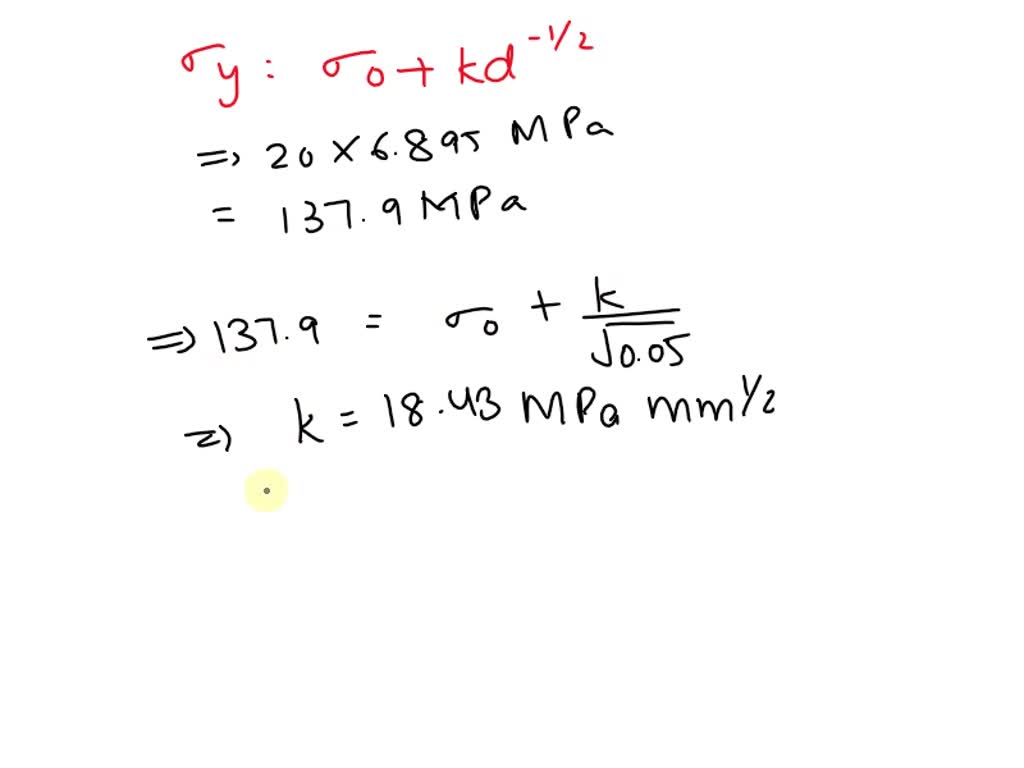 σy: σ0 + kd^-1/2
=> 20 × 6.895 MPa
= 137.9 MPa
=> 137.9 = σ0 + k/√0.05
=> k = 18.43 MPa mm^1/2